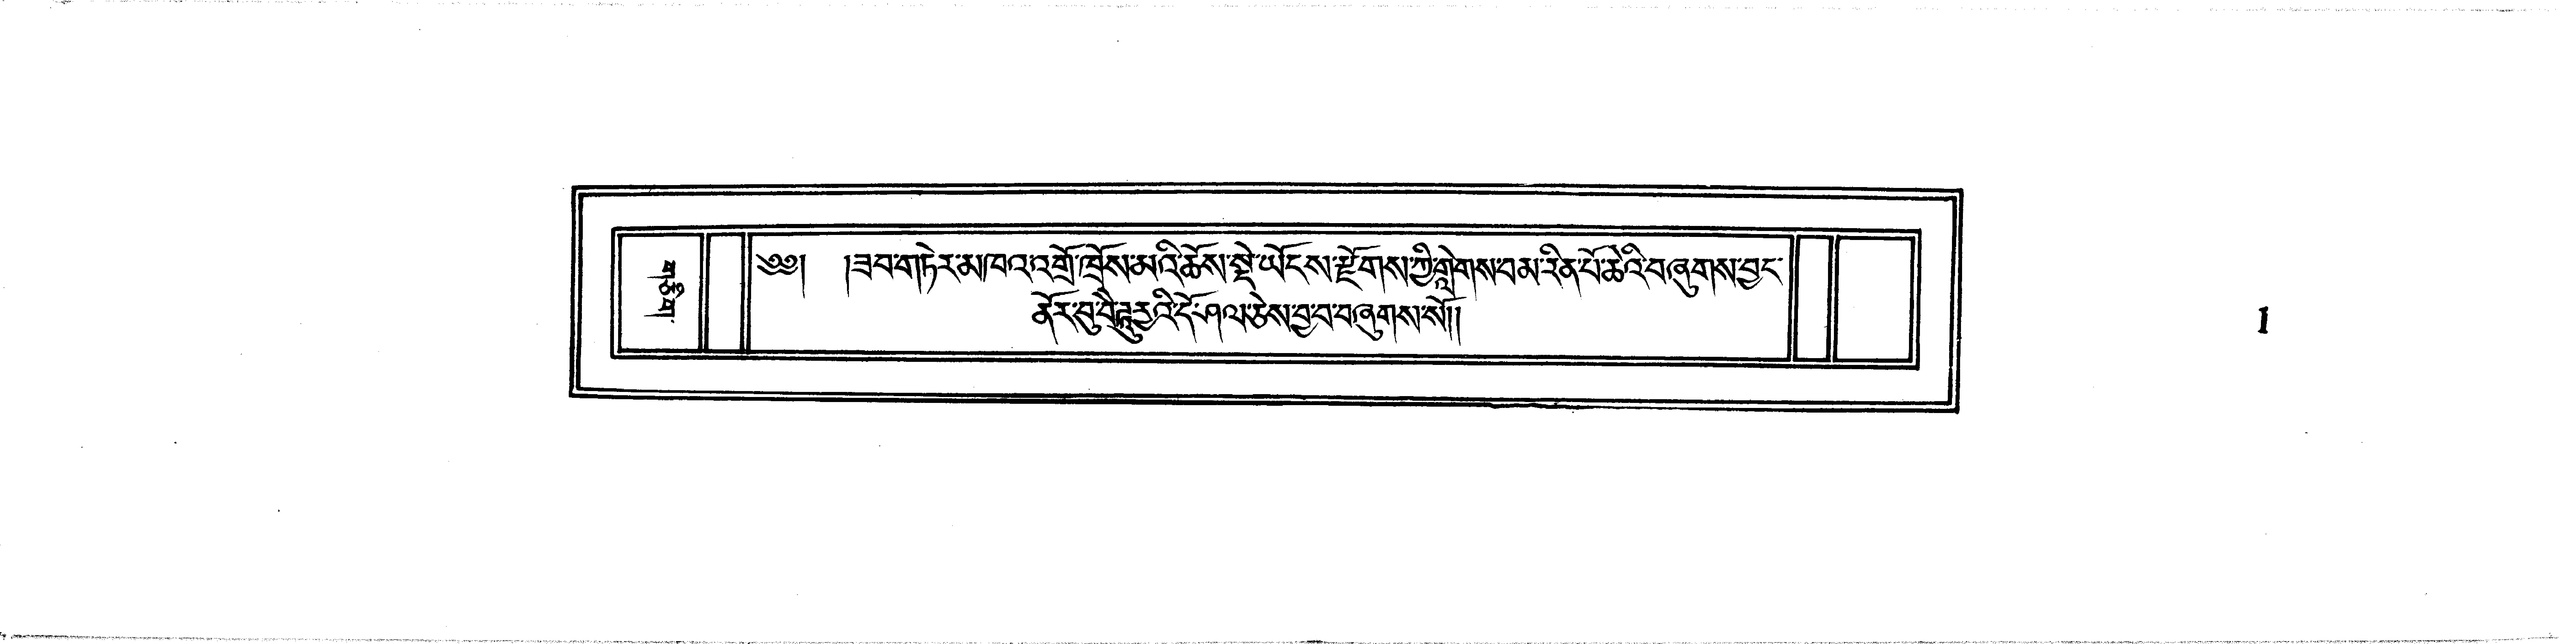 གཅིག
༄༅། །ཟབ་གཏེར་མཁའ་འགྲོ་ཁྲོས་མའི་ཆོས་སྡེ་ཡོངས་རྫོགས་ཀྱི་གླེགས་བམ་རིན་པོ་ཆེའི་བཞུགས་བྱང་
ནོར་བུ་བཻཌཱུརྱའི་དོ་ཤལ་ཅེས་བྱ་བ་བཞུགས་སོ།།
1